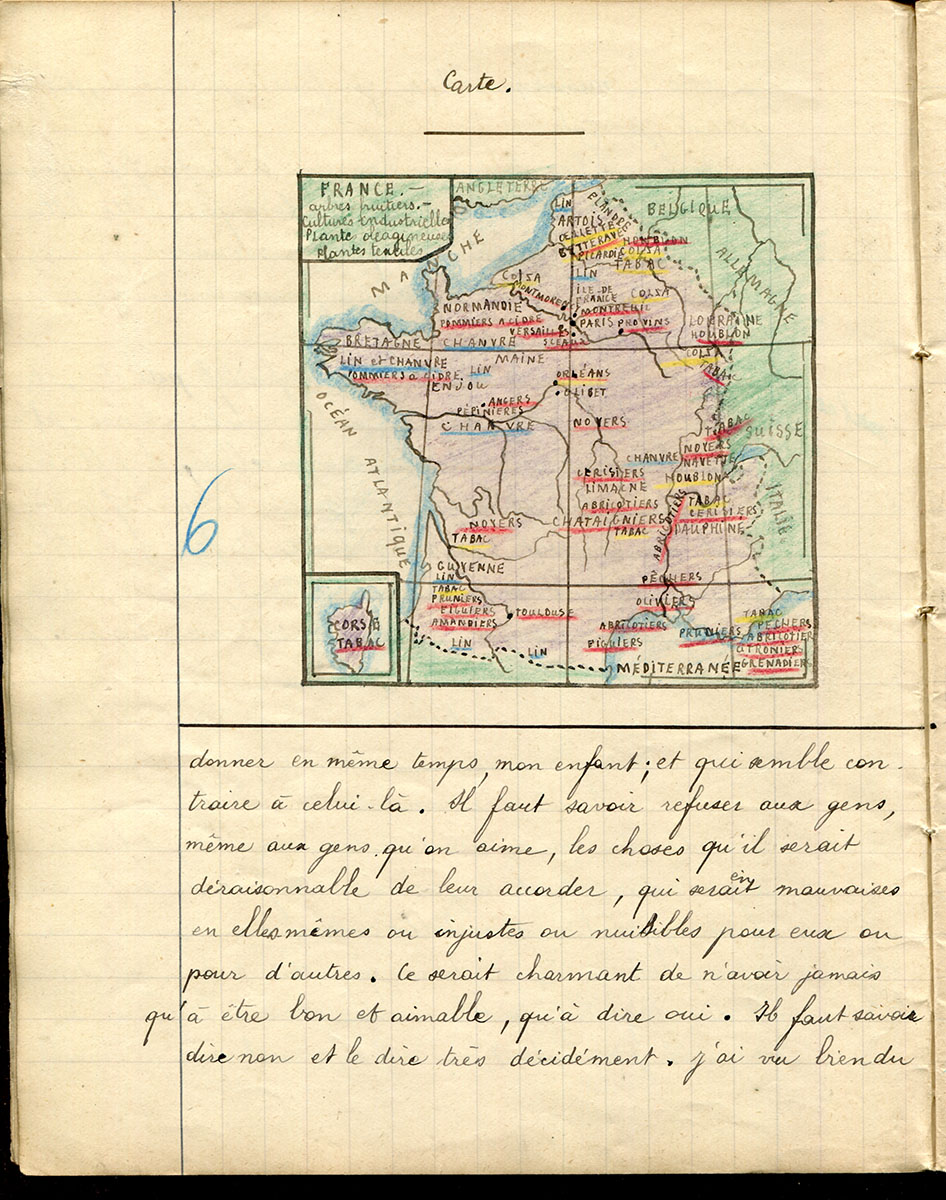 Carte.
FRANCE.-
arbres fruitiers.-
Cultures industrielles
Plante oléagineuses
Plantes textiles
ANGLETERRE
MANCHE
LIN
FLANDRE
BELGIQUE
ARTOIS
OEILLETTE
BETTERAVE
HOUBLON
PICARDIE
COLSA
TABAC
ALLEMAGNE
LIN
COLSA
MONTMORENCY
ÎLE DE
FRANCE
COLSA
NORMANDIE
MONTREUIL
POMMIERS A CIDRE
PARIS
PROVINS
LORRAINE
HOUBLON
VERSAILLES
SCEAUX
BRETAGNE
CHANVRE
MAINE
COLSA
TABAC
LIN et CHANVRE
LIN
POMMIERS a CIDRE
ENJOU
ORLÉANS
OLIBET
ANGERS
PÉPINIÈRES
CHANVRE
NOYERS
TABAC
SUISSE
NOYERS
CHANVRE
NAVETTE
OCÉAN ATLANTIQUE
CERISIERS
HOUBLON
LIMAGNE
ABRICOTIERS
TABAC
CERISIERS
ITALIE
NOYERS
CHATAIGNIERS
TABAC
DAUPHINÉ
TABAC
ABRICOTIERS
GUYENNE
LIN
TABAC
PRUNIERS
FIGUIERS
AMANDIERS
TOULOUSE
LIN
LIN
PÊCHERS
OLIVIERS
ABRICOTIERS
FIGUIERS
PRUNIERS
TABAC
PÊCHERS
ABRICOTIER
CITRONIERS
GRENADIERS
MÉDITERRANÉE
CORSE
TABAC
6
donner en même temps, mon enfant; et qui semble con-
traire à celui-là. Il faut savoir refuser aux gens,
même aux gens qu'on aime, les choses qu'il serait
déraisonnable de leur accorder, qui seraient mauvaises
en elles mêmes ou injustes ou nuisibles pour eux ou
pour d'autres. Ce serait charmant de n'avoir jamais
qu'à être bon et aimable, qu'à dire oui. Il faut savoir
dire non et le dire très décidément. j'ai vu bien du